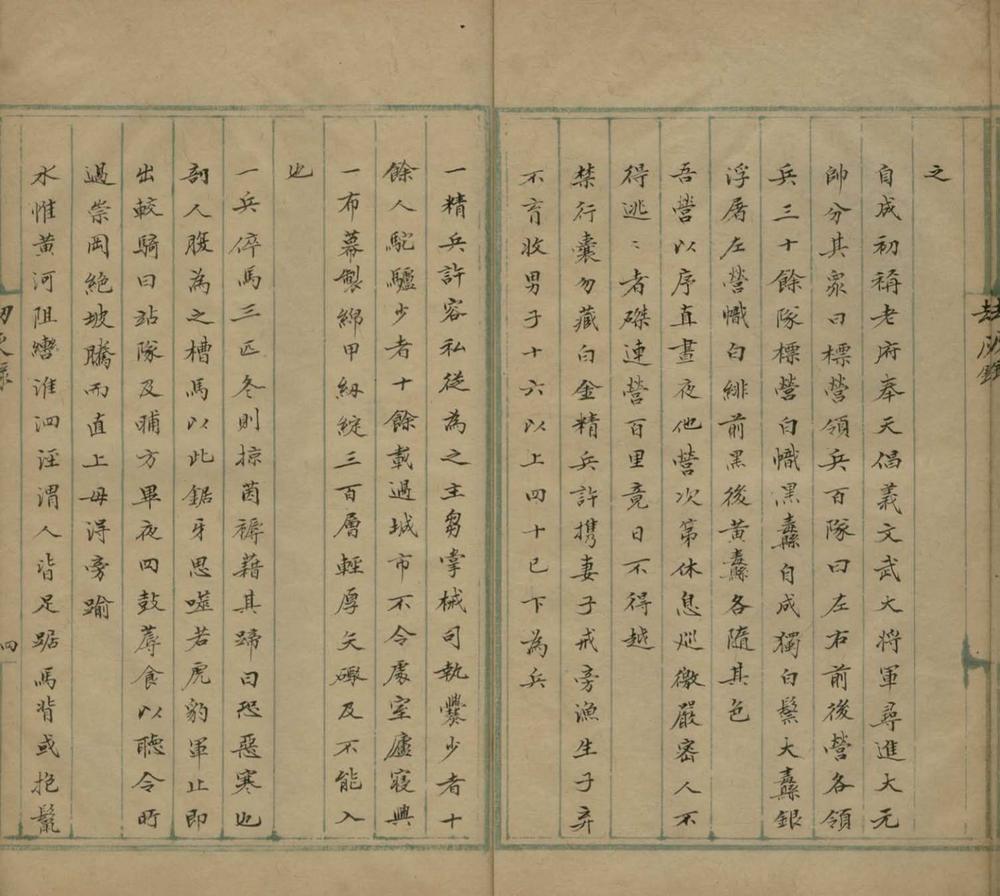 之
自成初稱老府奉天倡義文武大将軍尋進大元
帥分其衆曰標營領兵百隊曰左右前後營各領
兵三十餘隊標營白幟黑纛自成獨白鬃大纛銀
浮屠左營幟白緋前黑後黄纛各隨其色
吾營以序直晝夜他營次第休息廵徼嚴密人不
得逃〻者磔連營百里竟日不得越
禁行囊勿藏白金精兵許携妻子戒旁漁生子弃
不育收男子十六以上四十已下為兵
一精兵許容私從為之主芻掌械司執爨少者十
餘人駝驢少者十餘載過城市不令處室廬寝興
一布幕製綿甲紉綻三百層輕厚矢礮及不能入
也
一兵倅馬三匹冬則掠茵褥藉其蹄曰恐惡寒也
剖人腹為之槽馬以此鋸牙思噬若虎豹軍止即
出較騎曰站隊及晡方畢夜四鼓蓐食以聽令所
過崇岡絶坡騰而直上毋得旁踰
水惟黄河阻巒淮泗涇渭人皆足踞馬背或抱鬣
四